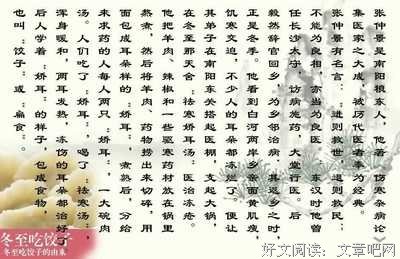 张仲景是南阳稂东人，他著《伤寒杂病论》，
集医家之大成，被历代医者奉为经典。
张仲景有名言：“进则救世，退则救民；
不能为良相，亦当为良医。”东汉时他曾
任长沙太守，访病施药，大堂行医。后
毅然辞官回乡，为乡邻治病。其返乡之时，
正是冬季。他看到白河两岸乡亲面黄肌瘦，
饥寒交迫，不少人的耳朵都冻烂了。便让
其弟子在南阳东关搭起医棚，支起大锅，
在冬至那天舍“祛寒娇耳汤”医治冻疮。
他把羊肉、辣椒和一些驱寒药材放在锅里
熬煮，然后将羊肉、药物捞出来切碎，用
面包成耳朵样的“娇耳”，煮熟后，分给
来求药的人每人两只“娇耳”，一大碗肉
汤。人们吃了“娇耳”，喝了“祛寒汤”，
浑身暖和，两耳发热，冻伤的耳朵都治好了
后人学着“娇耳”的样子，包成食物，
也叫“饺子”或“扁食”。
冬至吃饺子
冬至吃饺子的由来
好文阅读：文章吧网